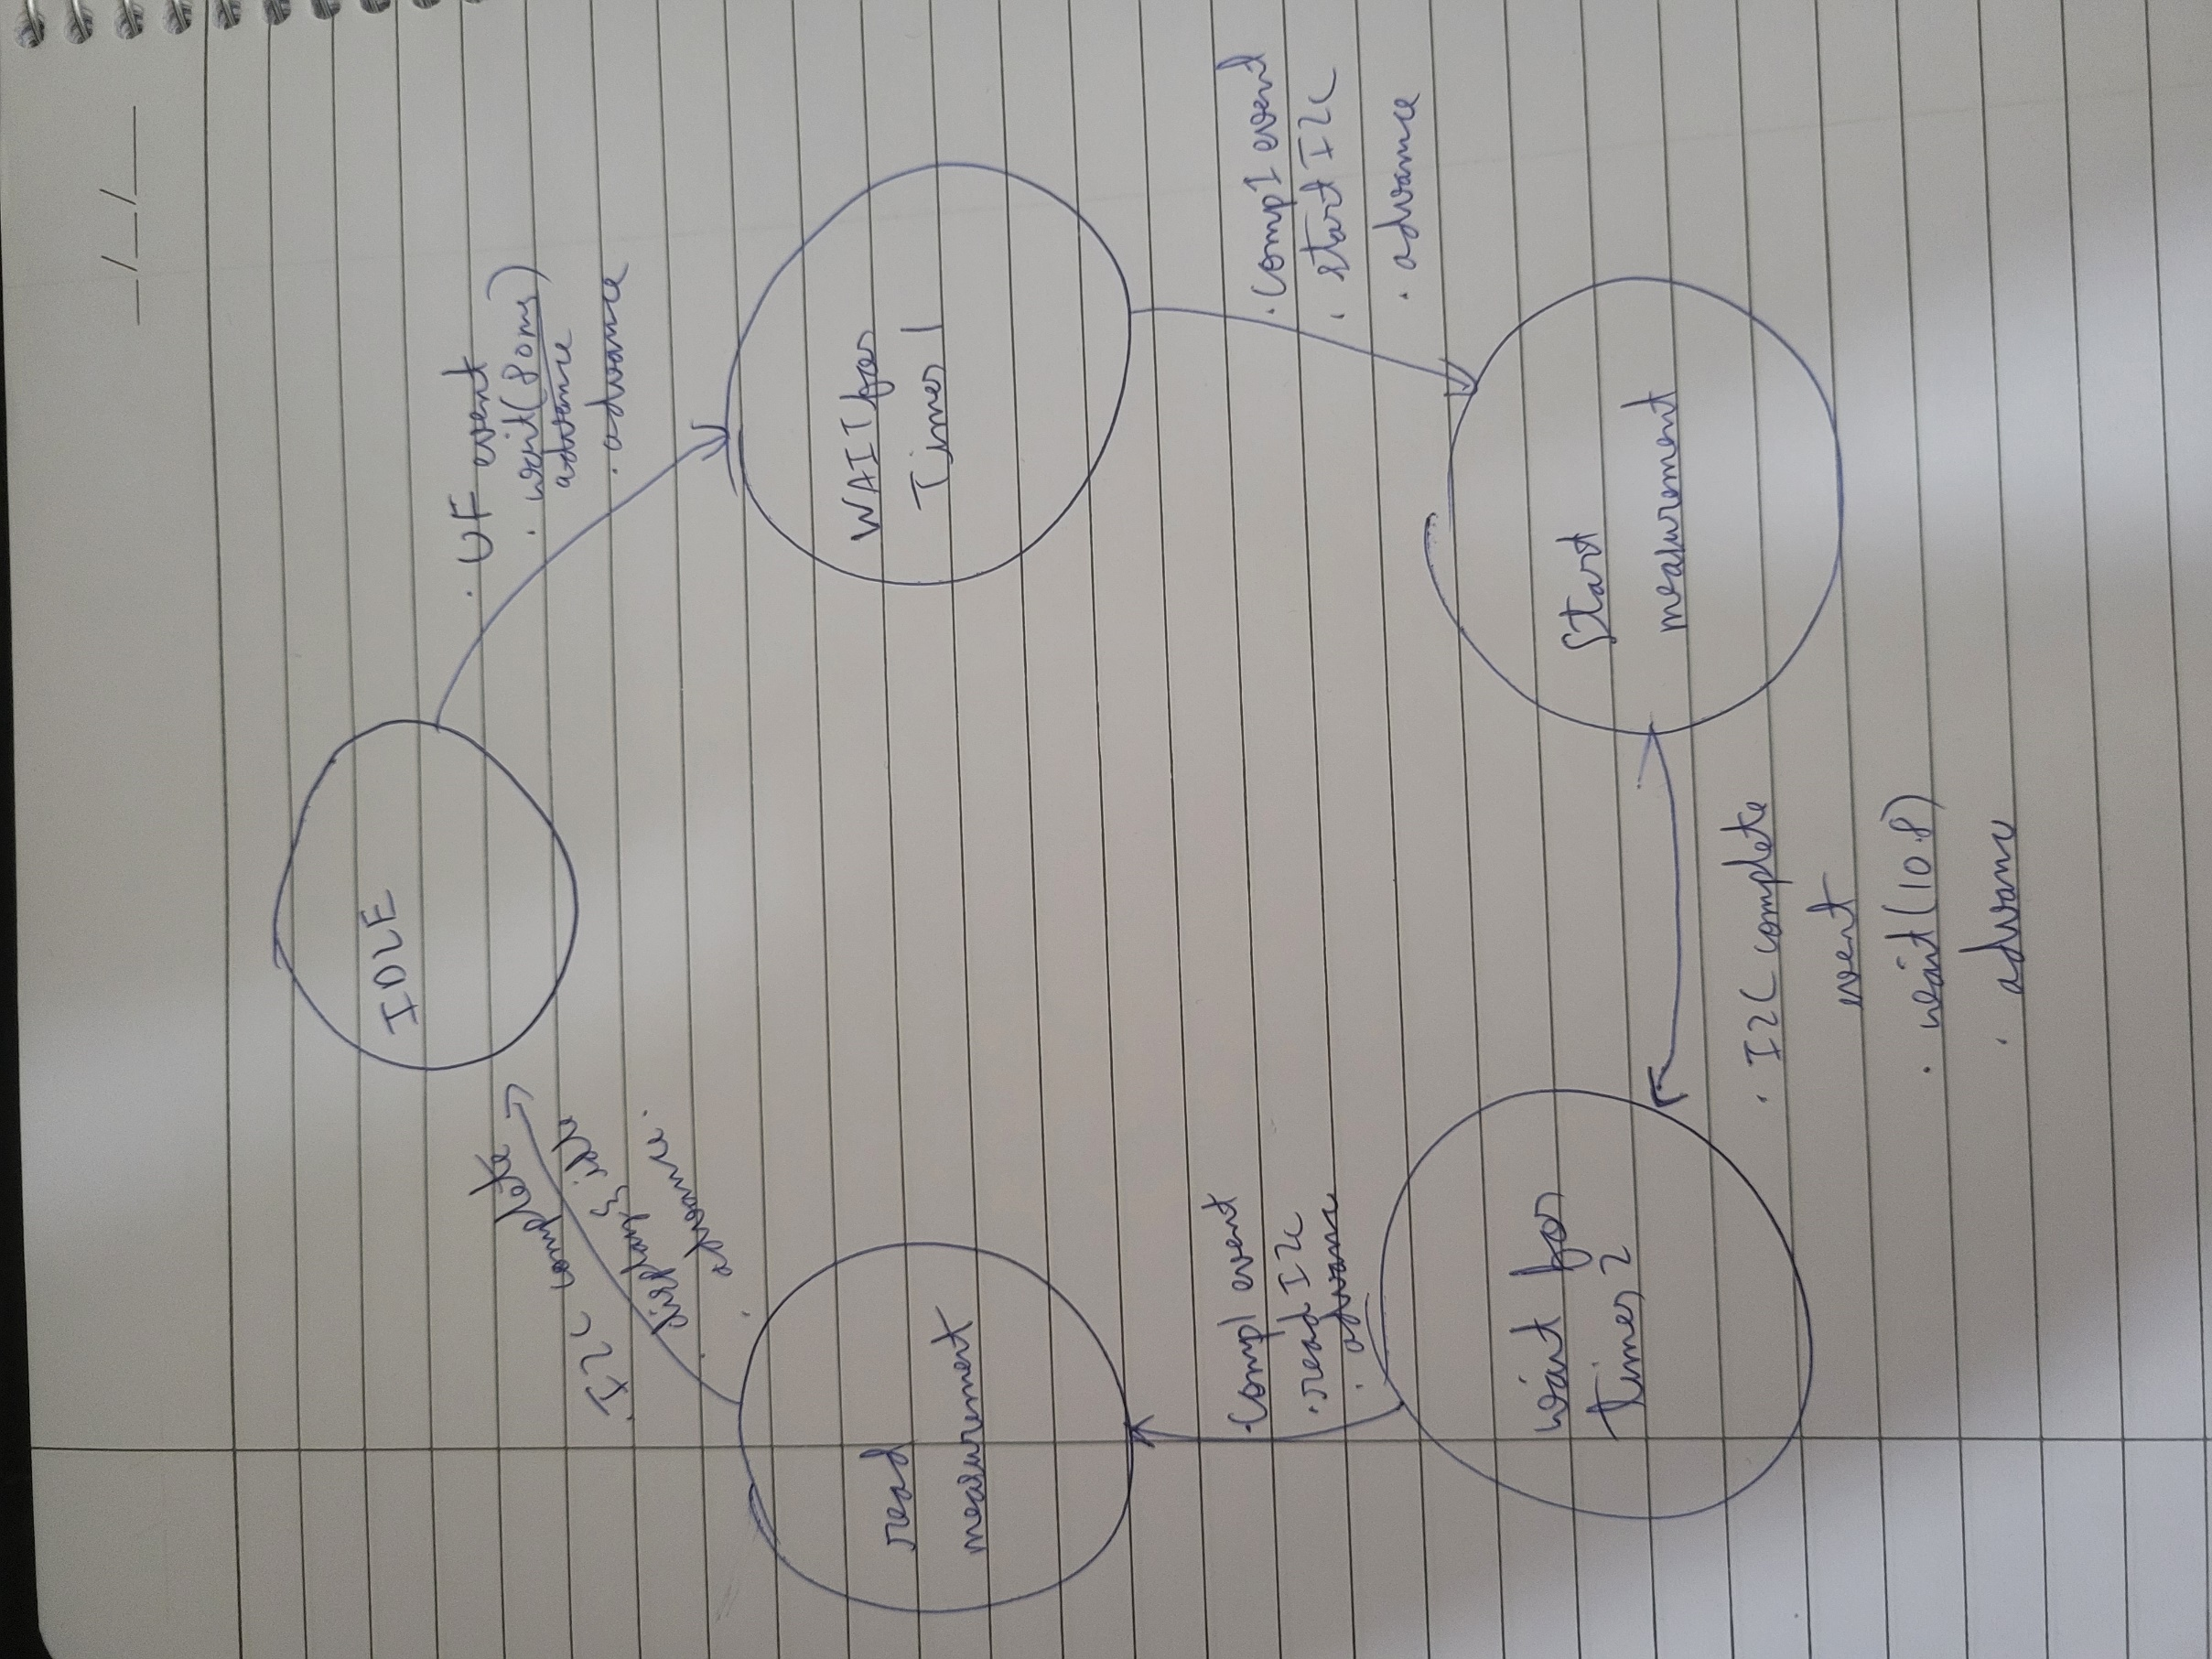 __/__/__
IDLE
. UF event
. wait(80ms)
advance
. advance
WAIT for
Timer 1
. Comp1 event
. start I2C
. advance
Start
measurement
. I2C complete
event
. wait(10.8)
. advance
wait for
timer 2
. Comp1 event
. read I2C
. advance
read
measurement
. I2C complete
. display & idle
. advance.